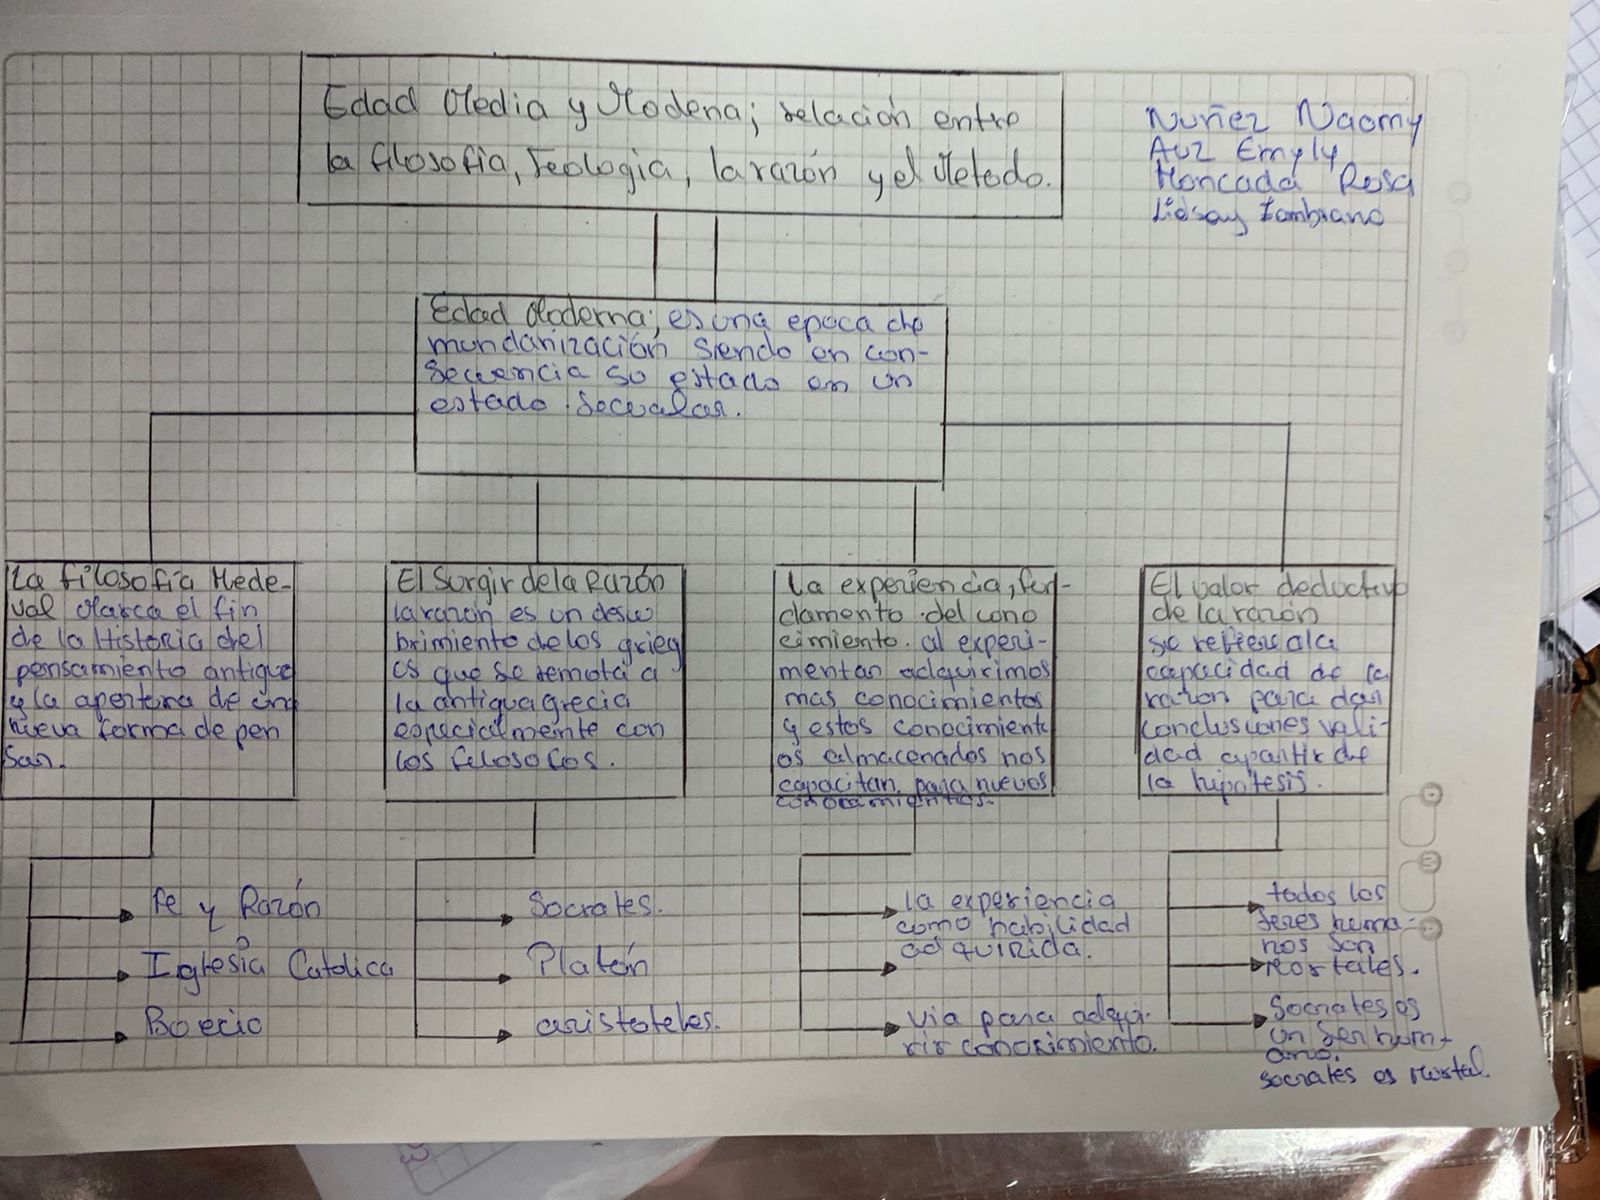 Edad Media y Modena; relación entre
la filosofia, Teologia, la razón y el Metodo.
Nuñez Naomy
Auz Emyly
Moncada Rosa
Lidsay Zambrano
Edad Moderna; es una epoca de
mundanización siendo en con-
secuencia so estado en un
estado secualar.
La filosofia Mede-
val Marca el fin
de la Historia del
pensamiento antiguo
y la apertura de una
nueva forma de pen
san.
El Surgir de la Razón
la razon es un descu
brimiento de los grieg
os que se remota a
la antigua grecia
especialmente con
los filosofos.
La experiencia, fun-
damento del cono
cimiento. al experi-
mentar adquirimos
mas conocimientos
y estos conocimient
os almacenados nos
capacitan para nuevos
conocimientos.
El valor deductivo
de la razón
se refiere a la
capacidad de la
razon para dar
conclusiones vali-
dad apartir de
la hipotesis.
Fe y Razón
Iglesia Catolica
Boecio
Socrates.
Platón
aristoteles.
la experiencia
como habilidad
adquirida.
via para adqui-
rir conocimiento.
todos los
seres huma-
nos son
Mortales.
Socrates es
un ser hum-
ano.
socrates es Mortal.